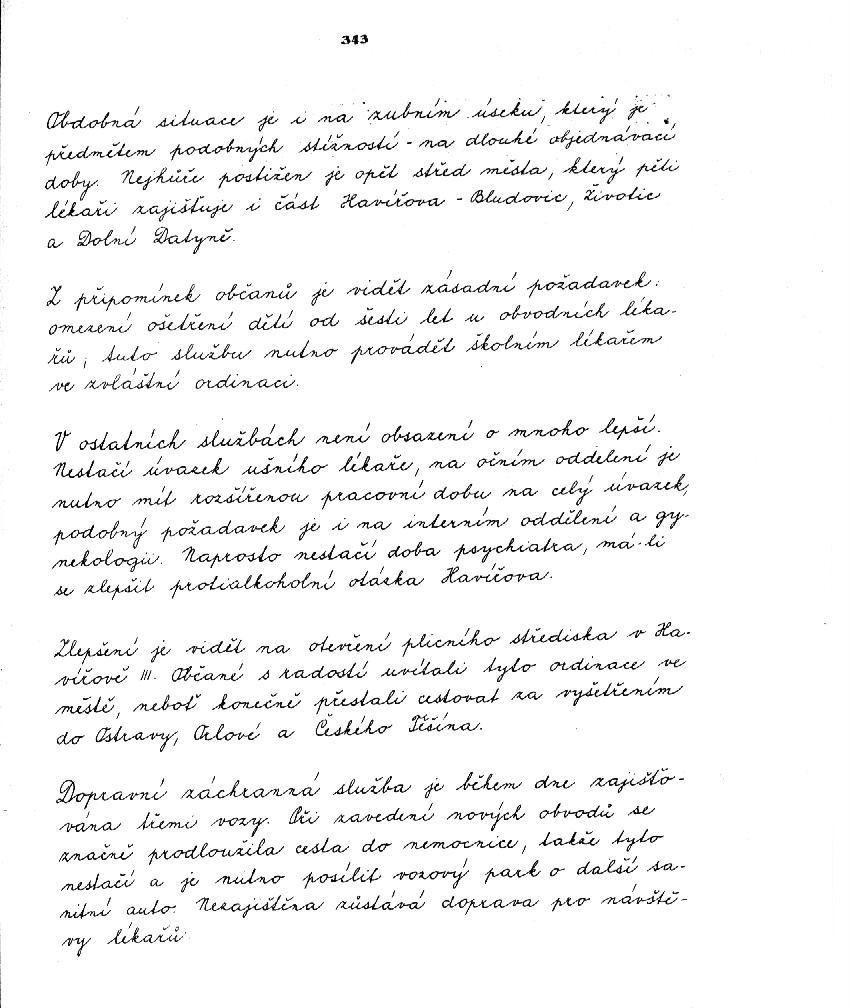 343
Obdobná situace je i na zubním úseku, který je
předmětem podobných stížností - na dlouhé objednávací
doby. Nejhůře postižen je opět střed města, který pěti
lékaři zajišťuje i část Havířova - Bludovic, Životic
a Dolní Datyně.
Z připomínek občanů je vidět zásadní požadavek:
omezení ošetření dětí od šesti let u obvodních léka-
řů, tuto službu nutno provádět školním lékařem
ve zvláštní ordinaci.
V ostatních službách není obsazení o mnoho lepší.
Nestačí úvazek ušního lékaře, na očním oddelení je
nutno mít rozšířenou pracovní dobu na celý úvazek,
podobný požadavek je i na interním oddělení a gy-
nekologii. Naprosto nestačí doba psychiatra, má-li
se zlepšit protialkoholní otázka Havířova.
Zlepšení je vidět na otevření plicního střediska v Ha-
vířově III. Občané s radostí uvítali tyto ordinace ve
městě, neboť konečně přestali cestovat za vyšetřením
do Ostravy, Orlové a Českého Těšína.
Dopravní záchranná služba je během dne zajišťo-
vána třemi vozy. Při zavedení nových obvodů se
značně prodloužila cesta do nemocnice, takže tyto
nestačí a je nutno posílit vozový park o další sa-
nitní auto. Nezajištěna zůstává doprava pro návště-
vy lékařů